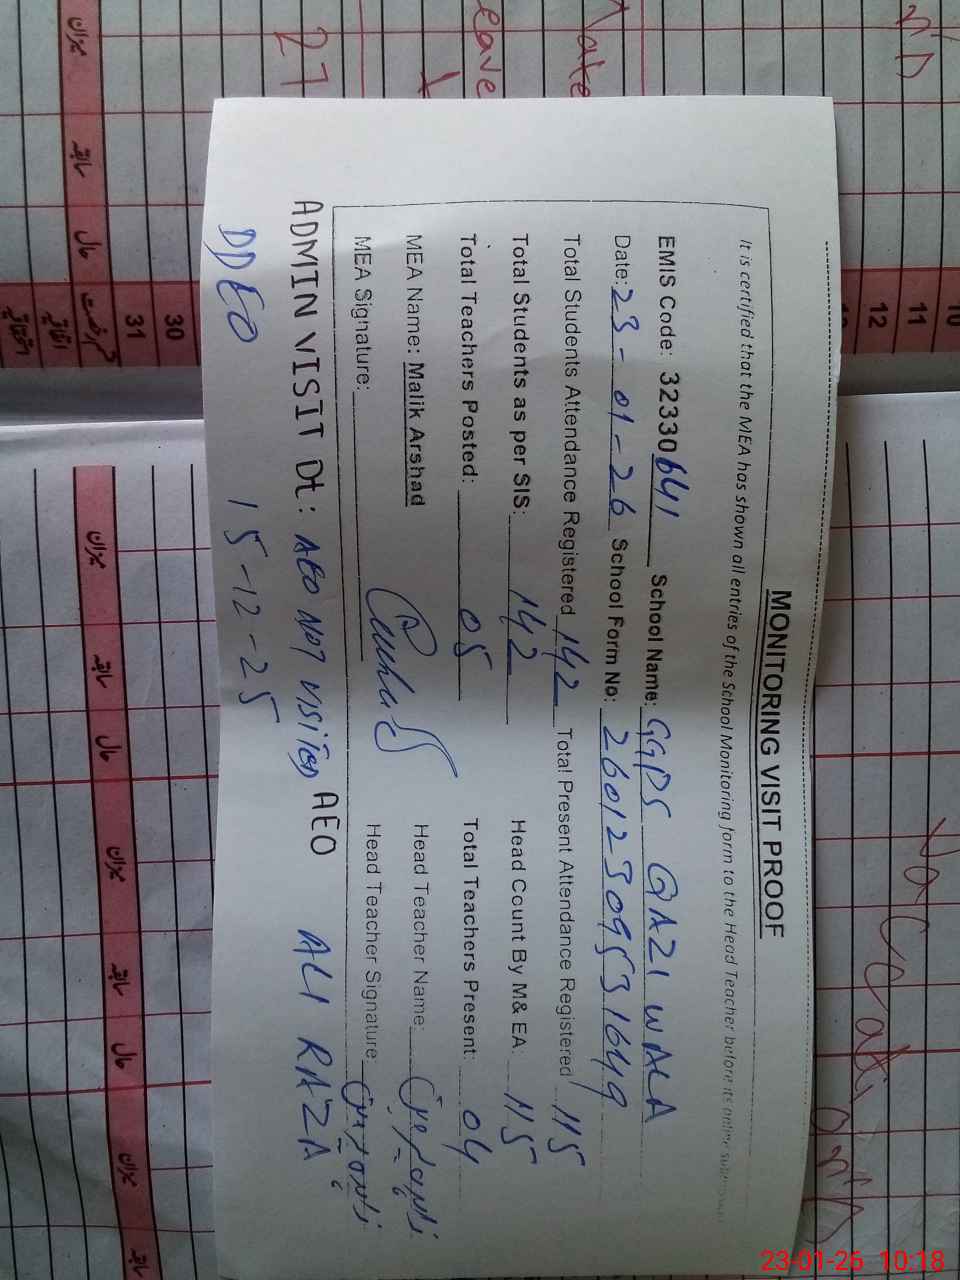 MONITORING VISIT PROOF
It is certified that the MEA has shown all entries of the School Monitoring form to the Head Teacher before its online submission
EMIS Code: 32330641 School Name: GGPS QAZI WALA
Date: 23-01-26 School Form No: 26012309531649
Total Students Attendance Registered 142 Total Present Attendance Registered 115
Total Students as per SIS: 142 Head Count By M& EA: 115
Total Teachers Posted: 05 Total Teachers Present: 04
MEA Name: Malik Arshad Head Teacher Name:
MEA Signature: Head Teacher Signature:
ADMIN VISIT Dt: AEO NOT VISITED AEO ALI RAZA
DDEO 15-12-25
میزان
سابقہ
حال
27
eave
ate
10
11
12
30
31
میزان
سابقہ
حال
میزان
سابقہ
حال
میزان
23-01-26 10:18